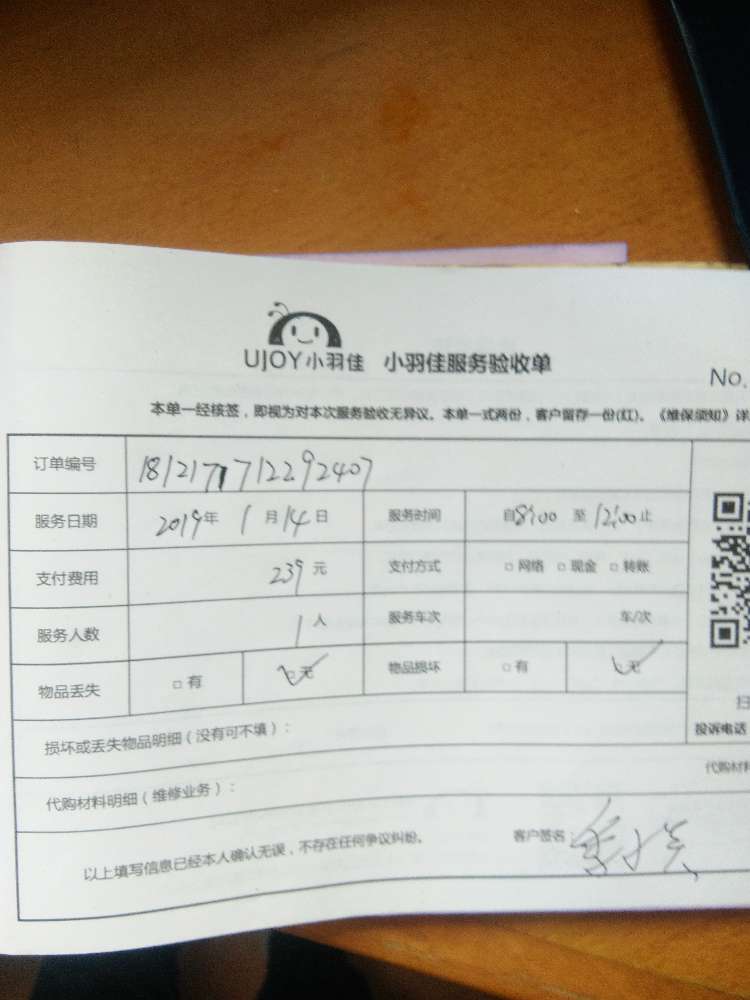 UJOY小羽佳 小羽佳服务验收单
No.
本单一经核签，即视为对本次服务验收无异议。本单一式两份，客户留存一份(红)。《维保须知》详
订单编号 1812171712292407
服务日期 2019年 1月14日 服务时间 自8:00 至 12:00止
支付费用 239 元 支付方式 □网络 □现金 □转账
服务人数 1 人 服务车次 车/次
物品丢失 □有 □无 物品损坏 □有 □无
扫
损坏或丢失物品明细（没有可不填）：
投诉电话
代购材料明细（维修业务）：
代购材料
以上填写信息已经本人确认无误，不存在任何争议纠纷。 客户签名：